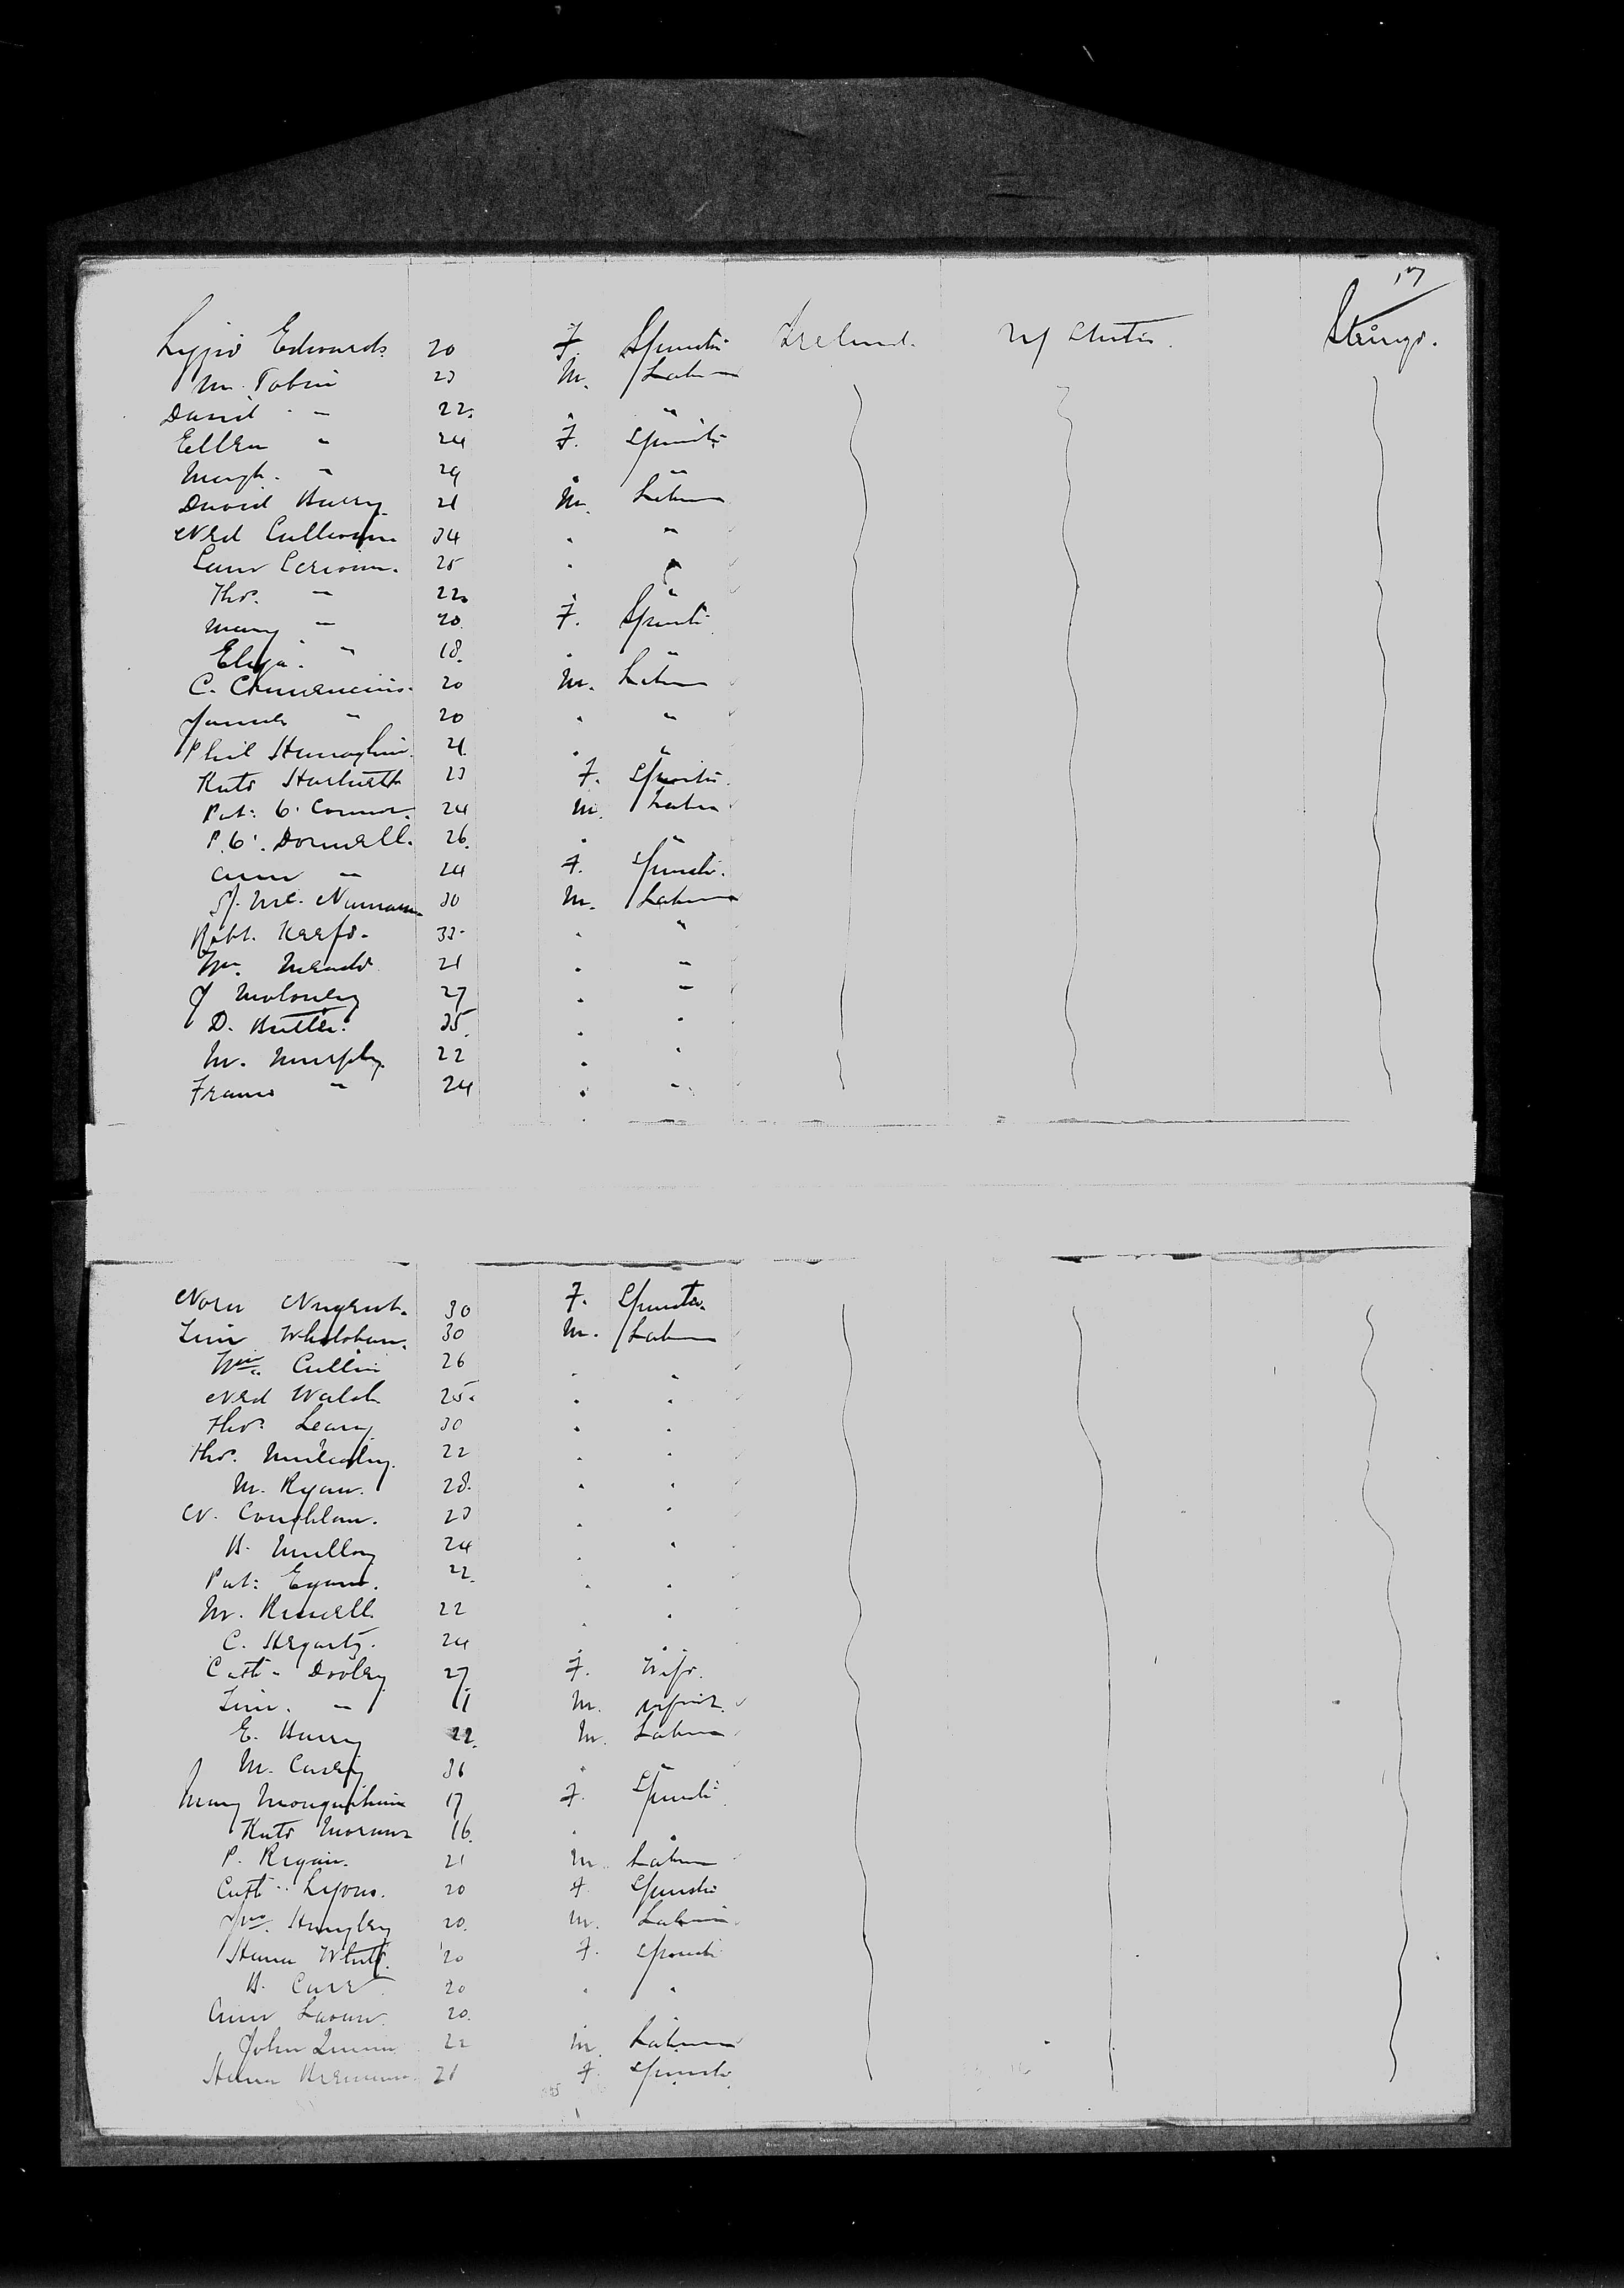 17
Lizzie Edwards 20 F. Spinster Ireland. U/ States. Steerage.
M. Tobin 23 M. Labr
David " 22 " "
Ellen " 24 F. Spinster
Margt. " 29 " "
David Barry 21 M. Labr
Ned Cullinan 34 " "
25 " "
Thos. " 22 " "
Mary " 20 F. Spinster
Eliza " 18 " "
C. 20 M. Labr
James " 20 " "
Phil 21 " "
Kate 23 F. Spinster
Pat: O'Connor 24 M. Labr
P. O'Donnell. 26 " "
Ann " 24 F. Spinster
Mc. Namara 30 M. Labr
Robt. Keefe 33 " "
Wm. Meade 21 " "
J Moloney 27 " "
D. Butler. 35 " "
M. Murphy 22 " "
Frans " 24 " "
Nora Nugent. 30 F. Spinster
Tim Whelehan. 30 M. Labr
Wm. Cullin 26 " "
Ned Walsh 25 " "
Thos. Leary 30 " "
Thos. Mulcahy. 22 " "
M. Ryan. 28 " "
N. Coughlan. 23 " "
B. Mulloy 24 " "
Pat: Egan. 22 " "
M. Russell. 22 " "
C. Hegarty. 24 " "
Cath Dooley 27 F. Wife.
Tim. " 11 M. infant.
E. Barry 22 M. Labr
M. Casey 36 " "
Mary 17 F. Spinster
Kate 16 " "
P. Regan. 21 M. Labr
Cath Lyons. 20 F. Spinster
Jno. Hungley 20 M. Labr
Hana White. 20 F. Spinster
B. Carr 20 " "
Ann 20
John Quinn 22 M. Labr
Hana Brennan 21 F. Spinster